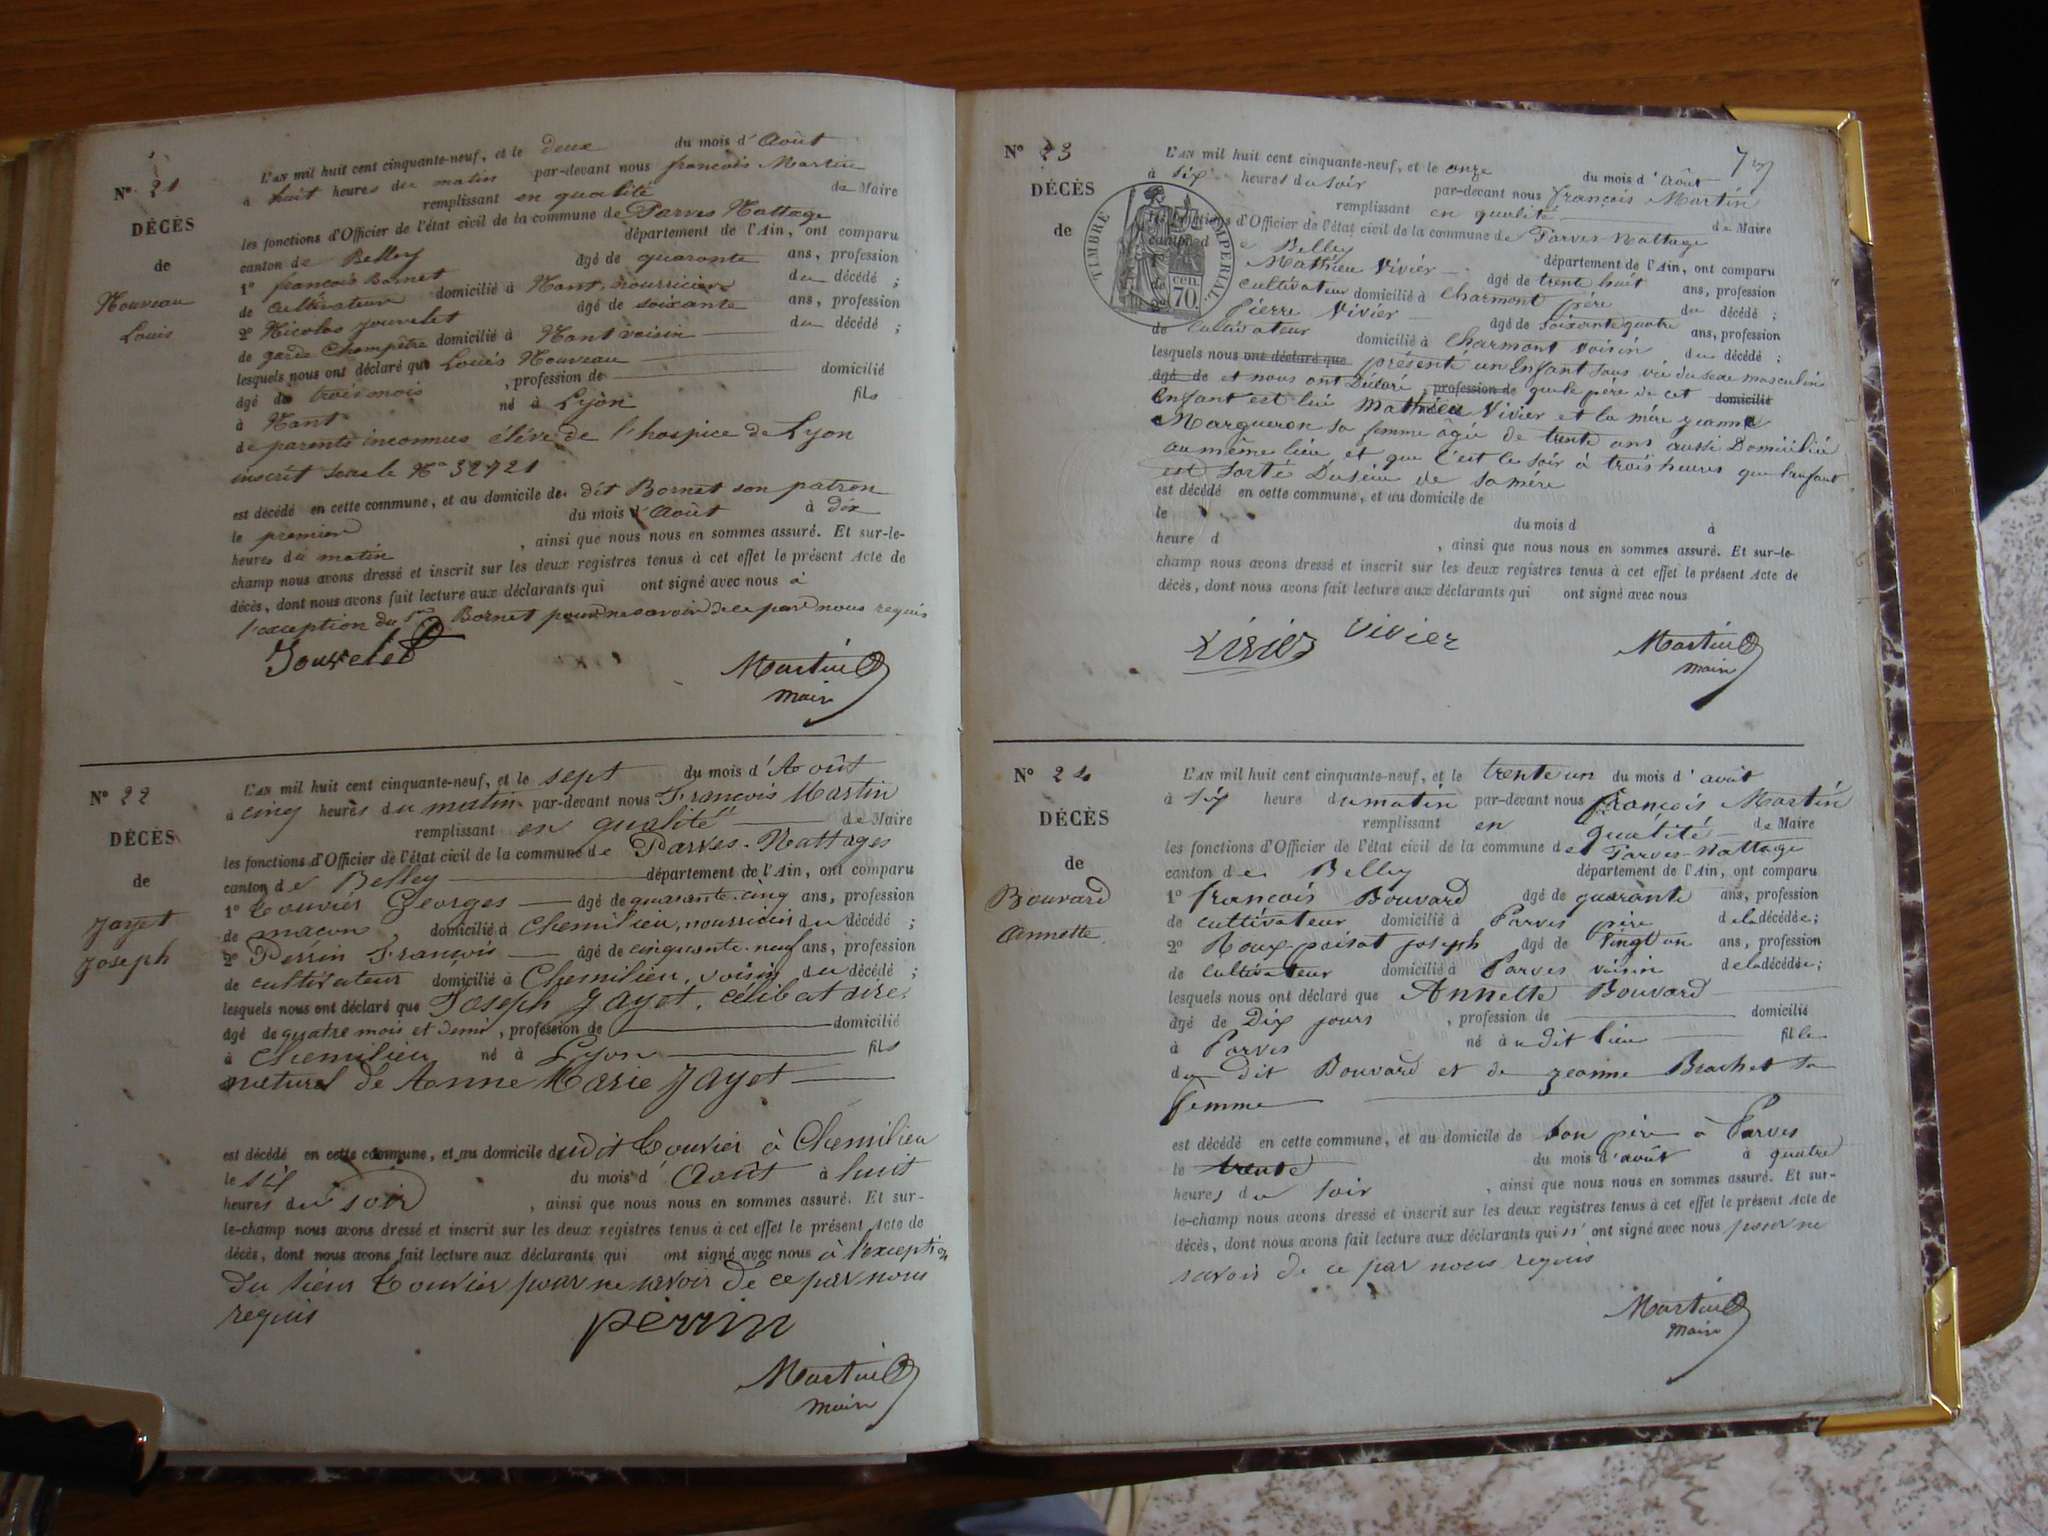 N° 21
DÉCÈS
de
Nouveau
Louis
L'AN mil huit cent cinquante-neuf, et le deux du mois d'Août
à huit heures du matin par-devant nous françois Martin
remplissant en qualité de Maire
les fonctions d'Officier de l'état civil de la commune de Parves Nattage
canton de Belley département de l'Ain, ont comparu
1° françois Bornet âgé de quarante ans, profession
de Cultivateur domicilié à Nant, nourricier du décédé ;
2° Nicolas Jouvelet âgé de soixante ans, profession
de garde Champêtre domicilié à Nant voisin du décédé ;
lesquels nous ont déclaré que Louis Nouveau
âgé de trois mois , profession de domicilié
à Nant né à Lyon fils
de parents inconnus élève de l'hospice de Lyon
inscrit sous le N° 32721
est décédé en cette commune, et au domicile de dit Bornet son patron
le premier du mois d'Août à dix
heures du matin , ainsi que nous nous en sommes assuré. Et sur-le-
champ nous avons dressé et inscrit sur les deux registres tenus à cet effet le présent Acte de
décès, dont nous avons fait lecture aux déclarants qui ont signé avec nous à
l'exception du Sr Bornet pour ne savoir de ce par nous requis
Jouvelet
Martin
maire
N° 22
DÉCÈS
de
Jayet
Joseph
L'AN mil huit cent cinquante-neuf, et le sept du mois d'Août
à cinq heures du matin par-devant nous François Martin
remplissant en qualité de Maire
les fonctions d'Officier de l'état civil de la commune de Parves-Nattages
canton de Belley département de l'Ain, ont comparu
1° Touvier Georges âgé de quarante-cinq ans, profession
de maçon domicilié à Chemilieu, nourricier du décédé ;
2° Perrin François âgé de cinquante-neuf ans, profession
de cultivateur domicilié à Chemilieu, voisin du décédé ;
lesquels nous ont déclaré que Joseph Jayet, célibataire
âgé de quatre mois et demi , profession de domicilié
à Chemilieu né à Lyon fils
naturel de Anne Marie Jayet
est décédé en cette commune, et au domicile dudit Touvier à Chemilieu
le six du mois d'Août à huit
heures du soir , ainsi que nous nous en sommes assuré. Et sur-
le-champ nous avons dressé et inscrit sur les deux registres tenus à cet effet le présent Acte de
décès, dont nous avons fait lecture aux déclarants qui ont signé avec nous à l'exception
du sieur Touvier pour ne savoir de ce par nous
requis
perrin
Martin
maire
N° 23
DÉCÈS
de
L'AN mil huit cent cinquante-neuf, et le onze du mois d'Août
à six heures du soir par-devant nous françois Martin
remplissant en qualité de Maire
les fonctions d'Officier de l'état civil de la commune de Parves-Nattage
canton de Belley département de l'Ain, ont comparu
TIMBRE IMPÉRIAL
70 cen.
Mathieu Vivier âgé de trente huit ans, profession
cultivateur domicilié à Charmont père du décédé ;
2° Pierre Vivier âgé de soixante quatre ans, profession
de Cultivateur domicilié à Charmont voisin du décédé ;
lesquels nous ont déclaré que présenté un Enfant sans vie du sexe masculin
âgé de et nous ont Déclaré , profession de que le père de cet domicilié
Enfant est lui Mathieu Vivier et la mère jeanne
Margueron sa femme âgée de trente ans aussi Domiciliée
au même lieu, et que c'est le soir à trois heures que l'enfant
est sorti Du sein de sa mère
est décédé en cette commune, et au domicile de
le du mois d à
heure d , ainsi que nous nous en sommes assuré. Et sur-le-
champ nous avons dressé et inscrit sur les deux registres tenus à cet effet le présent Acte de
décès, dont nous avons fait lecture aux déclarants qui ont signé avec nous
Vivier Vivier
Martin
maire
N° 24
DÉCÈS
de
Bouvard
Annette
L'AN mil huit cent cinquante-neuf, et le trente un du mois d'août
à six heure du matin par-devant nous françois Martin
remplissant en qualité de Maire
les fonctions d'Officier de l'état civil de la commune de Parves-Nattage
canton de Belley département de l'Ain, ont comparu
1° françois Bouvard âgé de quarante ans, profession
de cultivateur domicilié à Parves père de la décédée ;
2° Roux poisat joseph âgé de vingt un ans, profession
de cultivateur domicilié à Parves voisin de la décédée ;
lesquels nous ont déclaré que Annette Bouvard
âgé de Dix jours , profession de domicilié
à Parves né à u dit lieu fille
du dit Bouvard et de jeanne Brachet sa
femme
est décédé en cette commune, et au domicile de son père à Parves
le trente du mois d'août à quatre
heures du soir , ainsi que nous nous en sommes assuré. Et sur-
le-champ nous avons dressé et inscrit sur les deux registres tenus à cet effet le présent Acte de
décès, dont nous avons fait lecture aux déclarants qui n'ont signé avec nous pour ne
savoir de ce par nous requis
Martin
maire